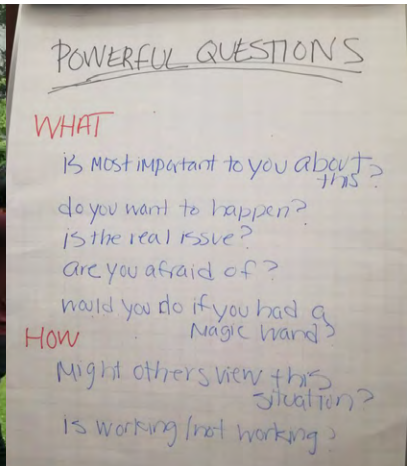 POWERFUL QUESTIONS
WHAT
is most important to you about
this?
do you want to happen?
is the real issue?
are you afraid of?
would you do if you had a
magic wand?
HOW
might others view this
situation?
is working/not working?